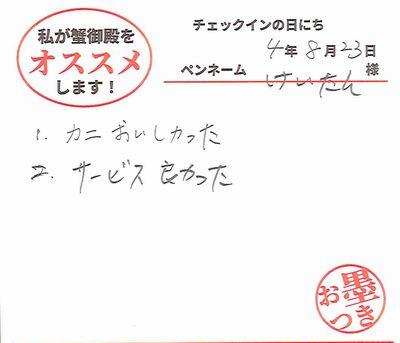 私が蟹御殿を
オススメ
します！
チェックインの日にち
4年8月23日
ペンネーム けいたん 様
1. カニ おいしかった
2. サービス 良かった
お墨つき